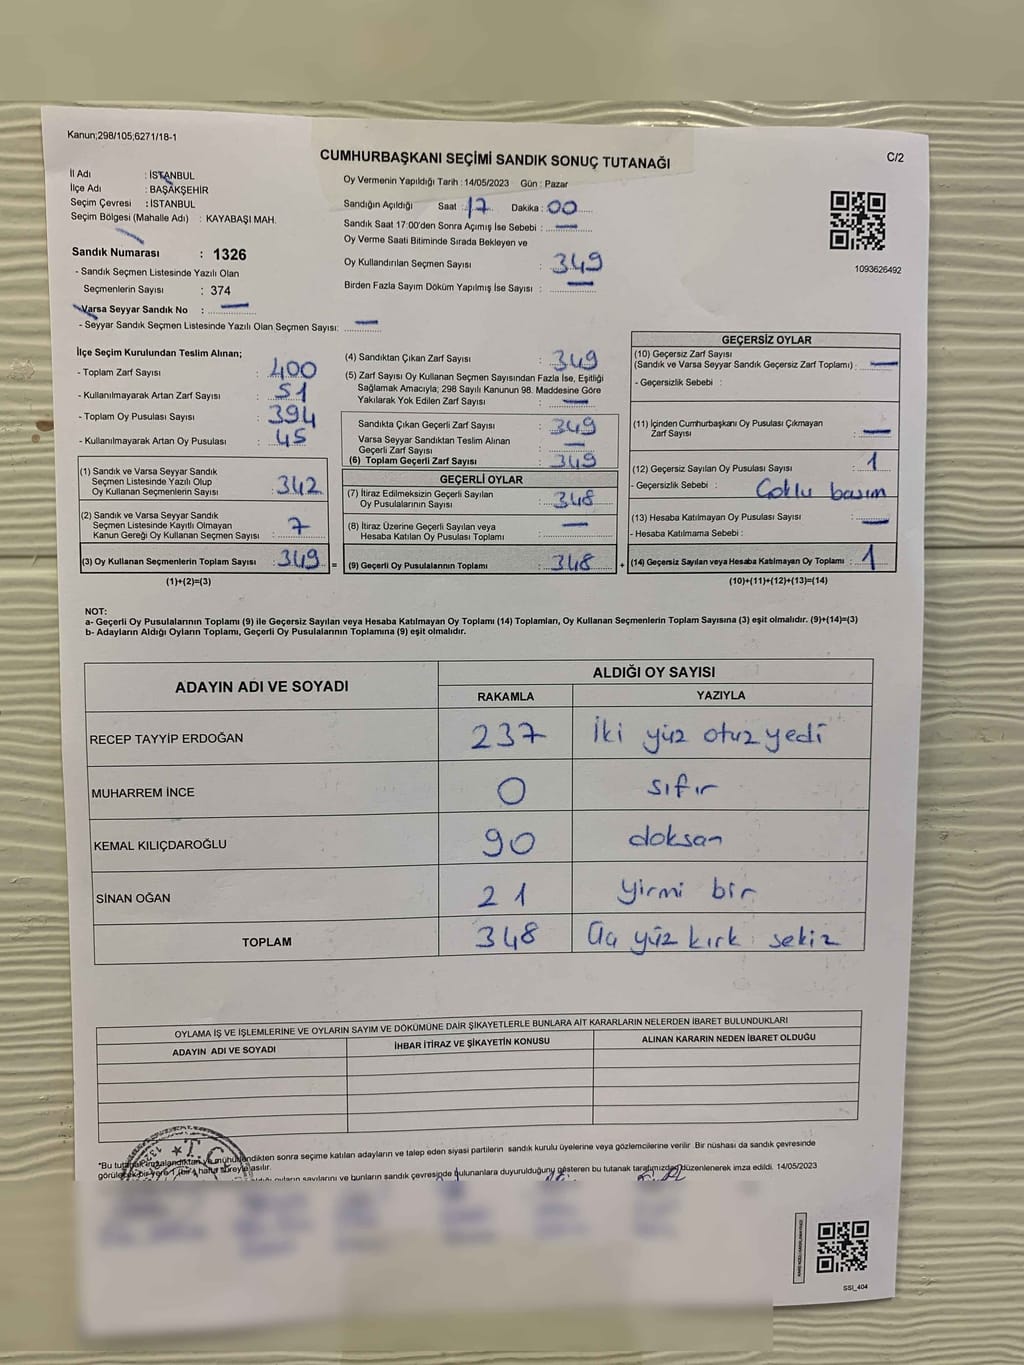 Kanun;298/105;6271/18-1
C/2
CUMHURBAŞKANI SEÇİMİ SANDIK SONUÇ TUTANAĞI
İl Adı : İSTANBUL
İlçe Adı : BAŞAKŞEHİR
Seçim Çevresi : İSTANBUL
Seçim Bölgesi (Mahalle Adı) : KAYABAŞI MAH.
Sandık Numarası : 1326
- Sandık Seçmen Listesinde Yazılı Olan
Seçmenlerin Sayısı : 374
Varsa Seyyar Sandık No : —
- Seyyar Sandık Seçmen Listesinde Yazılı Olan Seçmen Sayısı: —
Oy Vermenin Yapıldığı Tarih : 14/05/2023 Gün : Pazar
Sandığın Açıldığı Saat : 17 Dakika : 00
Sandık Saat 17:00'den Sonra Açımış İse Sebebi : —
Oy Verme Saati Bitiminde Sırada Bekleyen ve
Oy Kullandırılan Seçmen Sayısı : 349
Birden Fazla Sayım Döküm Yapılmış İse Sayısı : —
1093626492
İlçe Seçim Kurulundan Teslim Alınan;
- Toplam Zarf Sayısı : 400
- Kullanılmayarak Artan Zarf Sayısı : 51
- Toplam Oy Pusulası Sayısı : 394
- Kullanılmayarak Artan Oy Pusulası : 45
(1) Sandık ve Varsa Seyyar Sandık
Seçmen Listesinde Yazılı Olup
Oy Kullanan Seçmenlerin Sayısı : 342
(2) Sandık ve Varsa Seyyar Sandık
Seçmen Listesinde Kayıtlı Olmayan
Kanun Gereği Oy Kullanan Seçmen Sayısı : 7
(3) Oy Kullanan Seçmenlerin Toplam Sayısı : 349 =
(1)+(2)=(3)
(4) Sandıktan Çıkan Zarf Sayısı : 349
(5) Zarf Sayısı Oy Kullanan Seçmen Sayısından Fazla İse, Eşitliği
Sağlamak Amacıyla; 298 Sayılı Kanunun 98. Maddesine Göre
Yakılarak Yok Edilen Zarf Sayısı : —
Sandıkta Çıkan Geçerli Zarf Sayısı : 349
Varsa Seyyar Sandıktan Teslim Alınan
Geçerli Zarf Sayısı : —
(6) Toplam Geçerli Zarf Sayısı : 349
GEÇERLİ OYLAR
(7) İtiraz Edilmeksizin Geçerli Sayılan
Oy Pusulasının Sayısı : 348
(8) İtiraz Üzerine Geçerli Sayılan veya
Hesaba Katılan Oy Pusulası Toplamı : —
(9) Geçerli Oy Pusulalarının Toplamı : 348 +
GEÇERSİZ OYLAR
(10) Geçersiz Zarf Sayısı
(Sandık ve Varsa Seyyar Sandık Geçersiz Zarf Toplamı) : —
- Geçersizlik Sebebi :
(11) İçinden Cumhurbaşkanı Oy Pusulası Çıkmayan
Zarf Sayısı : —
(12) Geçersiz Sayılan Oy Pusulası Sayısı : 1
- Geçersizlik Sebebi : Çoklu basım
(13) Hesaba Katılmayan Oy Pusulası Sayısı : —
- Hesaba Katılmama Sebebi :
(14) Geçersiz Sayılan veya Hesaba Katılmayan Oy Toplamı : 1
(10)+(11)+(12)+(13)=(14)
NOT:
a- Geçerli Oy Pusulalarının Toplamı (9) ile Geçersiz Sayılan veya Hesaba Katılmayan Oy Toplamı (14) Toplamları, Oy Kullanan Seçmenlerin Toplam Sayısına (3) eşit olmalıdır. (9)+(14)=(3)
b- Adayların Aldığı Oyların Toplamı, Geçerli Oy Pusulalarının Toplamına (9) eşit olmalıdır.
ADAYIN ADI VE SOYADI
ALDIĞI OY SAYISI
RAKAMLA YAZIYLA
RECEP TAYYİP ERDOĞAN 237 İki yüz otuz yedi
MUHARREM İNCE 0 sıfır
KEMAL KILIÇDAROĞLU 90 doksan
SİNAN OĞAN 21 yirmi bir
TOPLAM 348 Üç yüz kırk sekiz
OYLAMA İŞ VE İŞLEMLERİNE VE OYLARIN SAYIM VE DÖKÜMÜNE DAİR ŞİKAYETLERLE BUNLARA AİT KARARLARIN NELERDEN İBARET BULUNDUKLARI
ADAYIN ADI VE SOYADI İHBAR İTİRAZ VE ŞİKAYETİN KONUSU ALINAN KARARIN NEDEN İBARET OLDUĞU
T.C.
*Bu tutanak imzalandıktan ve mühürlendikten sonra seçime katılan adayların ve talep eden siyasi partilerin sandık kurulu üyelerine veya gözlemcilerine verilir. Bir nüshası da sandık çevresinde
görülecek bir yere 1 (bir) hafta süreyle asılır.
oyların sayılarını ve bunların sandık çevresinde bulunanlara duyurulduğunu gösteren bu tutanak tarafımızdan düzenlenerek imza edildi. 14/05/2023
SSI_404